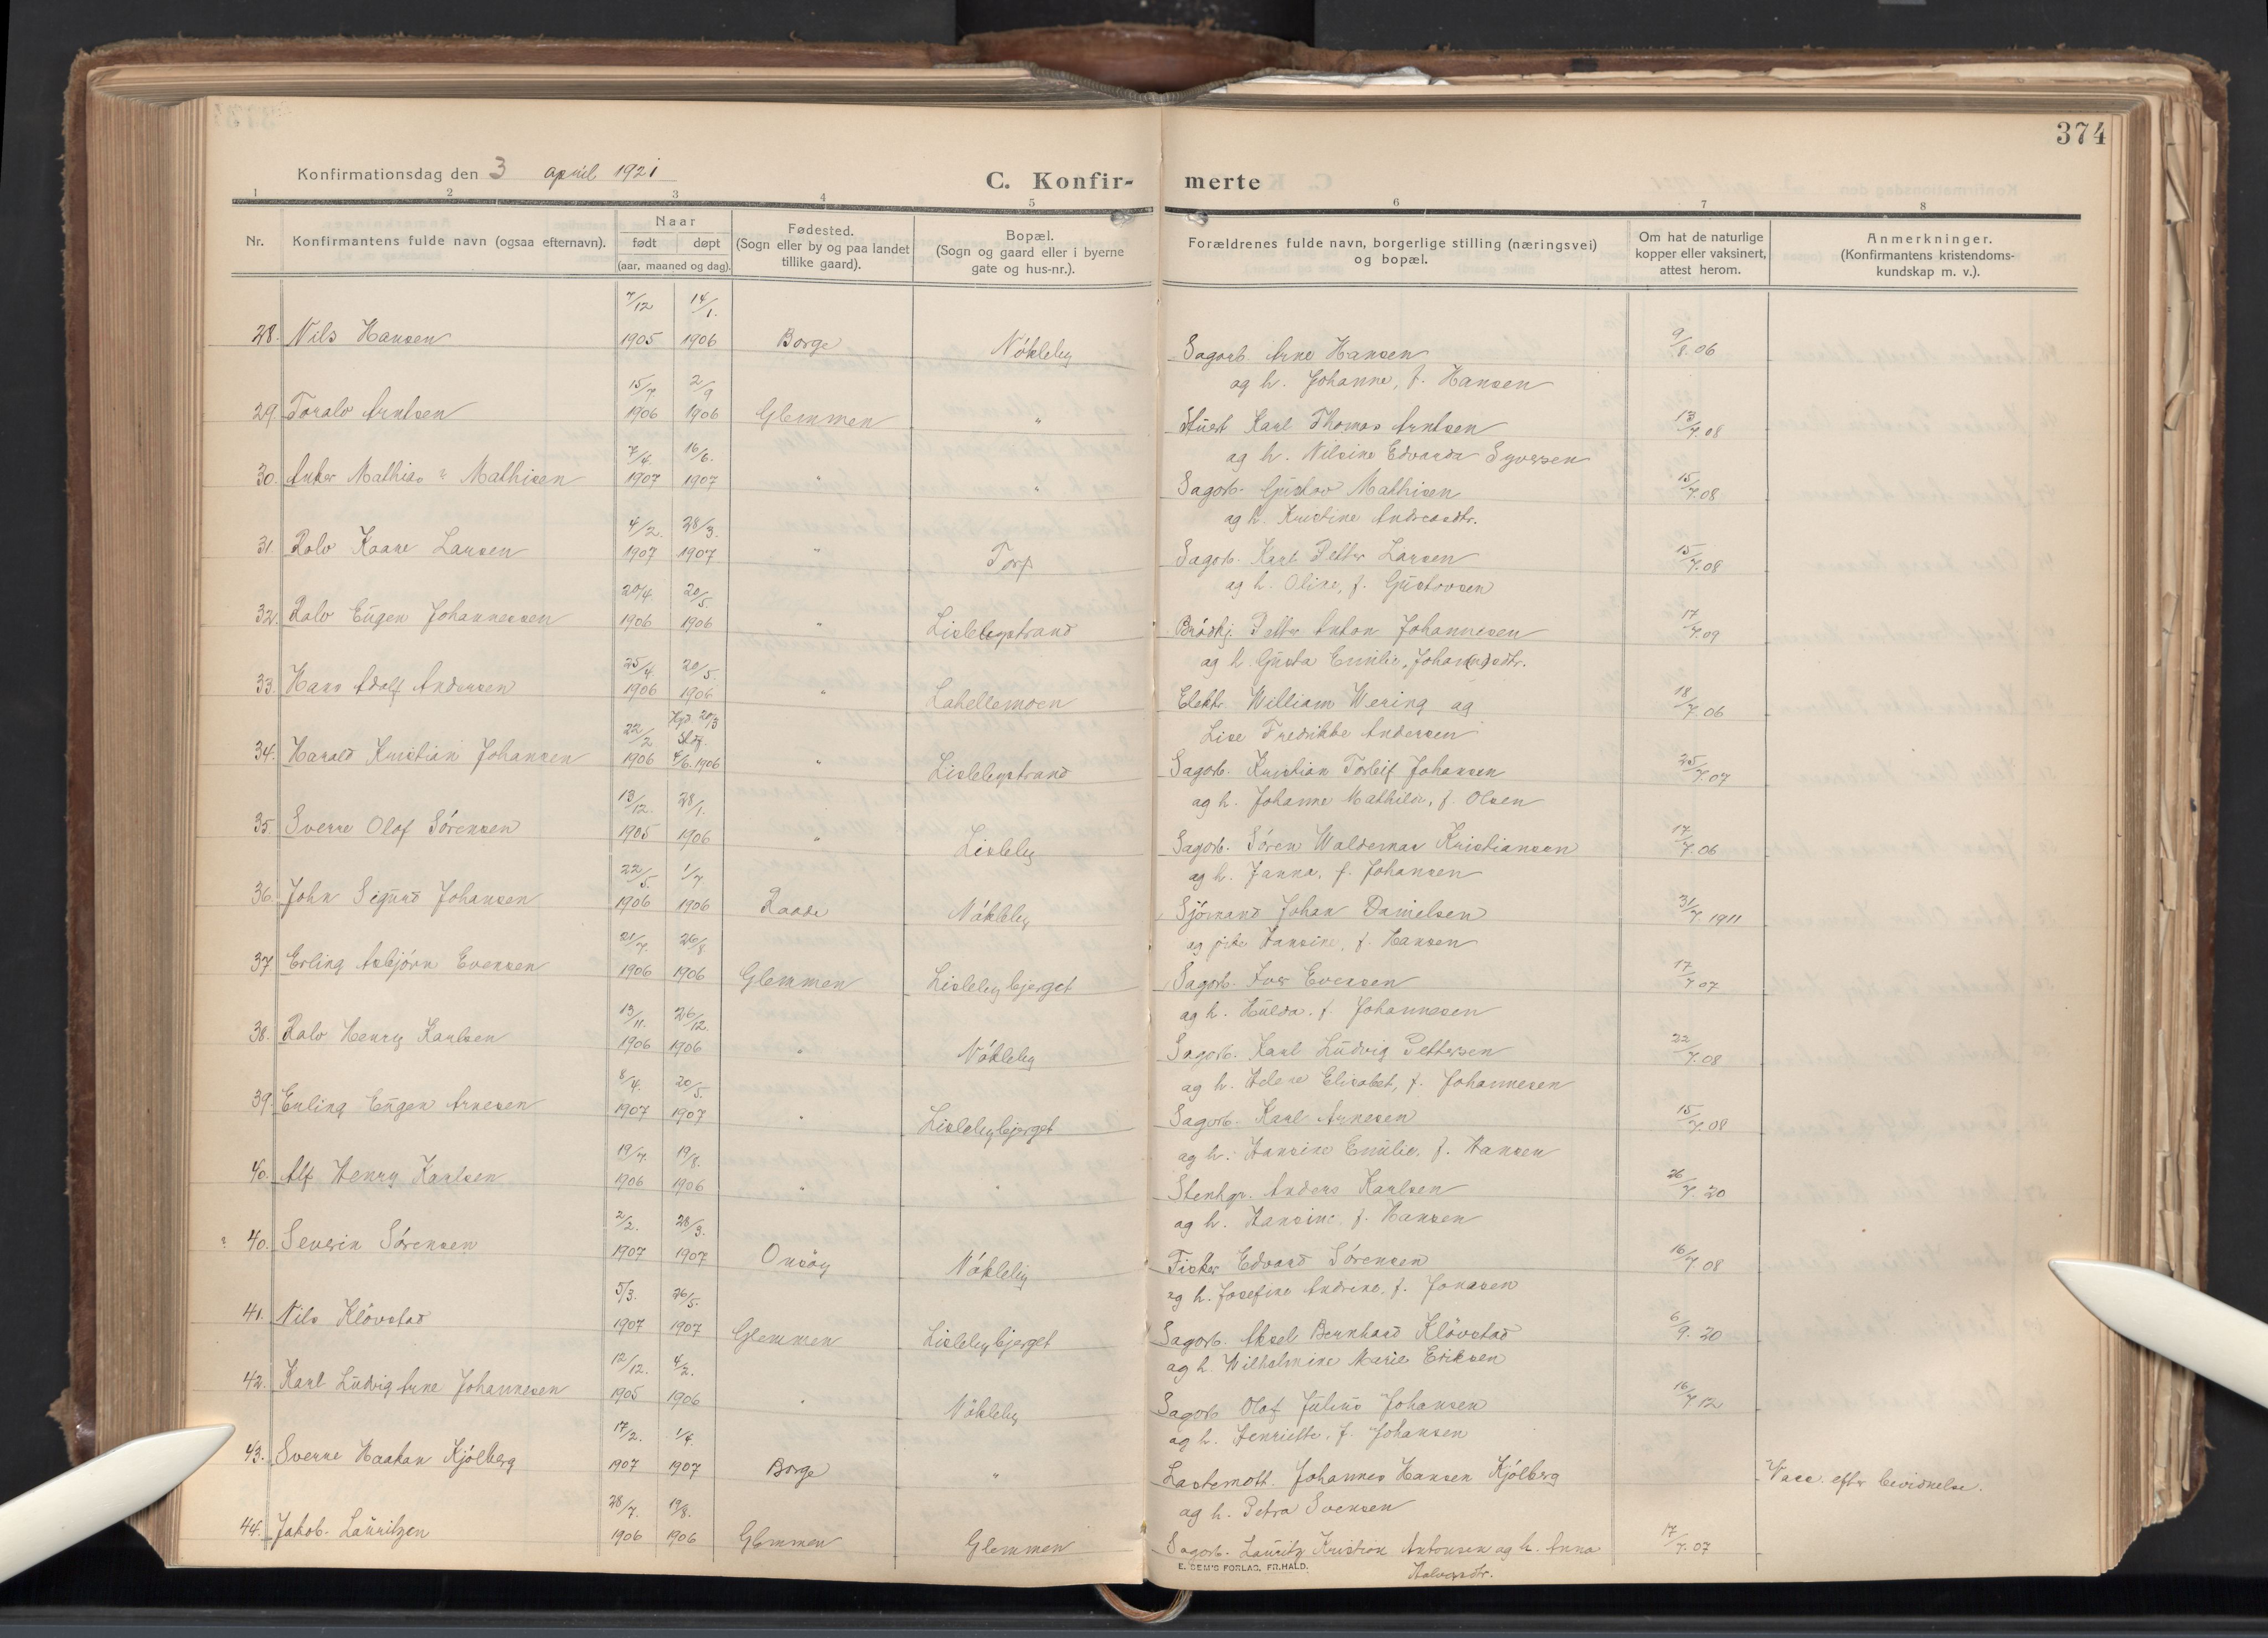 374
Konfirmationsdag den 3 april 1921
C. Konfir- merte
1 2 3 4 5 6 7 8
Nr.
Konfirmantens fulde navn (ogsaa efternavn).
Naar
født døpt
(aar, maaned og dag).
Fødested.
(Sogn eller by og paa landet
tillike gaard).
Bopæl.
(Sogn og gaard eller i byerne
gate og hus-nr.).
Forældrenes fulde navn, borgerlige stilling (næringsvei)
og bopæl.
Om hat de naturlige
kopper eller vaksinert,
attest herom.
Anmerkninger.
(Konfirmantens kristendoms-
kundskap m. v.).
7/12 14/1.
28. Nils Hansen 1905 1906 Borge Nókleby Sagarb. Arne Hansen 9/8.06
og h. Johanne, f. Hansen
15/7 2/9
29. Toralv Arntsen 1906 1906 Glemmen " Stuert Karl Thomas Arntsen 13/7.08
og h. Nilsine Edvarda Syversen
7/4. 16/6.
30. Anker Mathias Mathisen 1907 1907 " " Sagarb. Gustav Mathisen 15/7.08
og h. Kristine Andreasdtr.
4/2. 28/3.
31. Rolv Kaare Larsen 1907 1907 " Torp. Sagarb. Karl Petter Larsen 15/7.08
og h. Oline, f. Gustavsen
20/4. 20/5.
32. Ralv Eugen Johannessen 1906 1906 " Lislebystrand Brödkj. Petter Anton Johannesen 17/7.09
og h. Gusta Emilie, Johan(ne)sdtr.
25/4. 20/5.
33. Hans Adolf Andersen 1906 1906 " Lahellemoen Elektr. William Wering og 18/7.06
Lise Fredrikke Andersen
22/2 Hjd. 20/3
Stdf.
34. Harald Kristian Johansen 1906 4/6.1906 " Lislebystrand Sagarb. Kristian Torleif Johansen 25/7.07
og h. Johanne Mathilde, f. Olsen
13/12. 28/1.
35. Sverre Olaf Sórensen 1905 1906 " Lisleby Sagarb. Sóren Waldemar Kristiansen 17/7.06
og h. Janna, f. Johansen
22/5. 1/7
36. John Sigurd Johansen 1906 1906 Raade Nókleby Sjómand Johan Danielsen 31/7.1911
og pike Hansine, f. Hansen
21/7. 26/8
37. Erling Asbjórn Evensen 1906 1906 Glemmen Lislebybjerget Sagarb. Ivar Evensen 17/7 07
og h. Hulda, f. Johannesen
13/11. 26/12.
38. Ralv Henry Karlsen 1906 1906 " Nókleby Sagarb. Karl Ludvig Pettersen 22/7.08
og h. Helene Elisabet, f. Johannesen
8/4. 20/5.
39. Erling Eugen Arnesen 1907 1907 " Lislebybjerget Sagarb. Karl Arnesen 15/7.08
og h. Hansine Emilie, f. Hansen
19/7. 19/8.
40. Alf Henry Karlsen 1906 1906 " " Stenhgr. Anders Karlsen 26/7.20
og h. Hansine, f. Hansen
2/2. 28/3.
? 40. Severin Sórensen 1907 1907 Onsöy Nókleby Fisker Edvard Sórensen 16/7 08
og h. Josefine Andrine, f. Jonassen
5/3. 26/5.
41. Nils Klövstad 1907 1907 Glemmen Lislebybjerget Sagarb. Aksel Bernhard Klövstad 6/9.20
og h. Wilhelmine Marie Eriksen
12/12. 4/2.
42. Karl Ludvig Arne Johannesen 1905 1906 " Nókleby Sagarb. Olaf Julius Johansen 16/7 12
og h. Henriette, f. Johansen
17/2. 1/4.
43. Sverre Haakan Kjólberg 1907 1907 Borge " Lastemott. Johannes Hansen Kjólberg Vacc. efter bevidnelse.
og h. Petra Svensen
28/7. 19/8.
44. Jakob Lauritzen 1906 1906 Glemmen Glemmen Sagarb. Lauritz Kristian Antonsen og h. Anna 17/7.07
Halvorsdtr.
E. SEM'S FORLAG, FR.HALD.